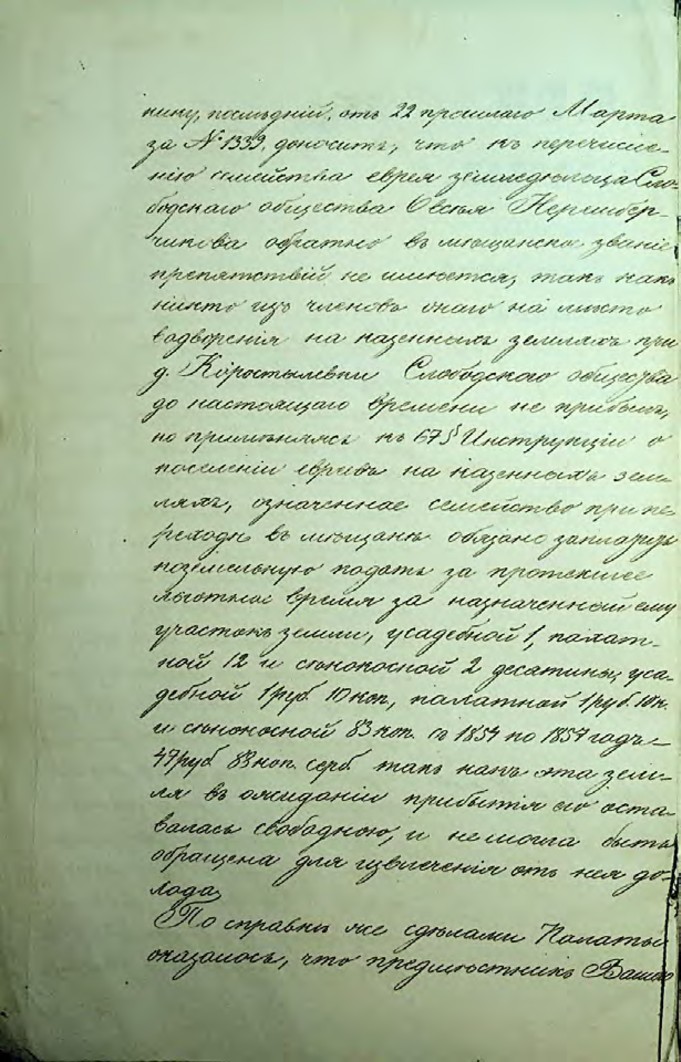 нику, последній, отъ 22 прошлаго Марта
за № 1339, доноситъ, что къ перечисле-
нію семейства еврея земледѣльца Сло-
бодскаго общества Овсѣя Перешбер-
чикова обратно въ мѣщанское званіе
препятствій не имѣется, такъ какъ
никто изъ членовъ онаго на мѣсто
водворенія на казенныхъ земляхъ при
д. Коростылевки Слободскаго общества
до настоящаго времени не прибылъ,
но примѣняясь къ 67 § Инструкціи о
поселеніи евреевъ на казенныхъ зем-
ляхъ, означенное семейство при пе-
реходѣ въ мѣщане обязано заплатить
поземельную подать за протекшее
льготное время за назначенной ему
участокъ земли, усадебной 1, пахат-
ной 12 и сѣнокосной 2 десятины, уса-
дебной 1 руб. 10 коп., пахатной 1 руб. 10 к.
и сѣнокосной 83 коп. съ 1854 по 1857 годъ –
47 руб 83 коп. сереб. такъ какъ эта зем-
ля въ ожиданіи прибытія его оста-
валась свободною, и не могла быть
обращена для извлеченія отъ нея до-
хода.
По справкѣ же сдѣланной Палатою
оказалось, что предмѣстникъ Вашего